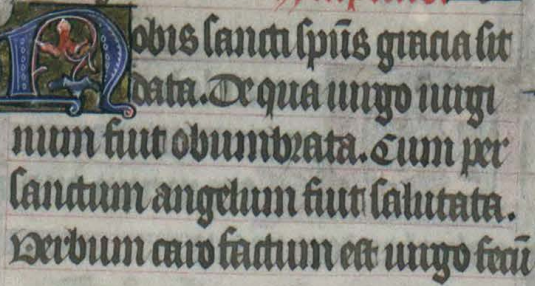 Nobis sancti sp̄us gracia sit
data. De qua uirgo uirgi
num fuit obumbrata. Cum per
sanctum angelum fuit salutata.
Verbum caro factum est uirgo fecū